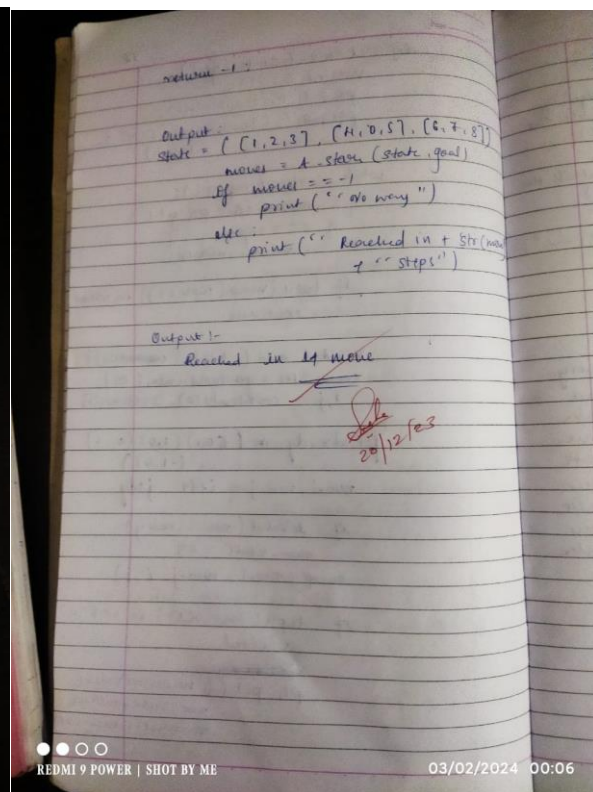 return -1 :
Output :
State = ( [1,2,3], [4,0,5], [6,7,8])
moves = A-star (state, goal)
if moves == -1
print (" no way ")
else :
print (" Reached in + Str(mov
+ " steps")
Output :-
Reached in 14 move
20/12/23
REDMI 9 POWER | SHOT BY ME
03/02/2024 00:06